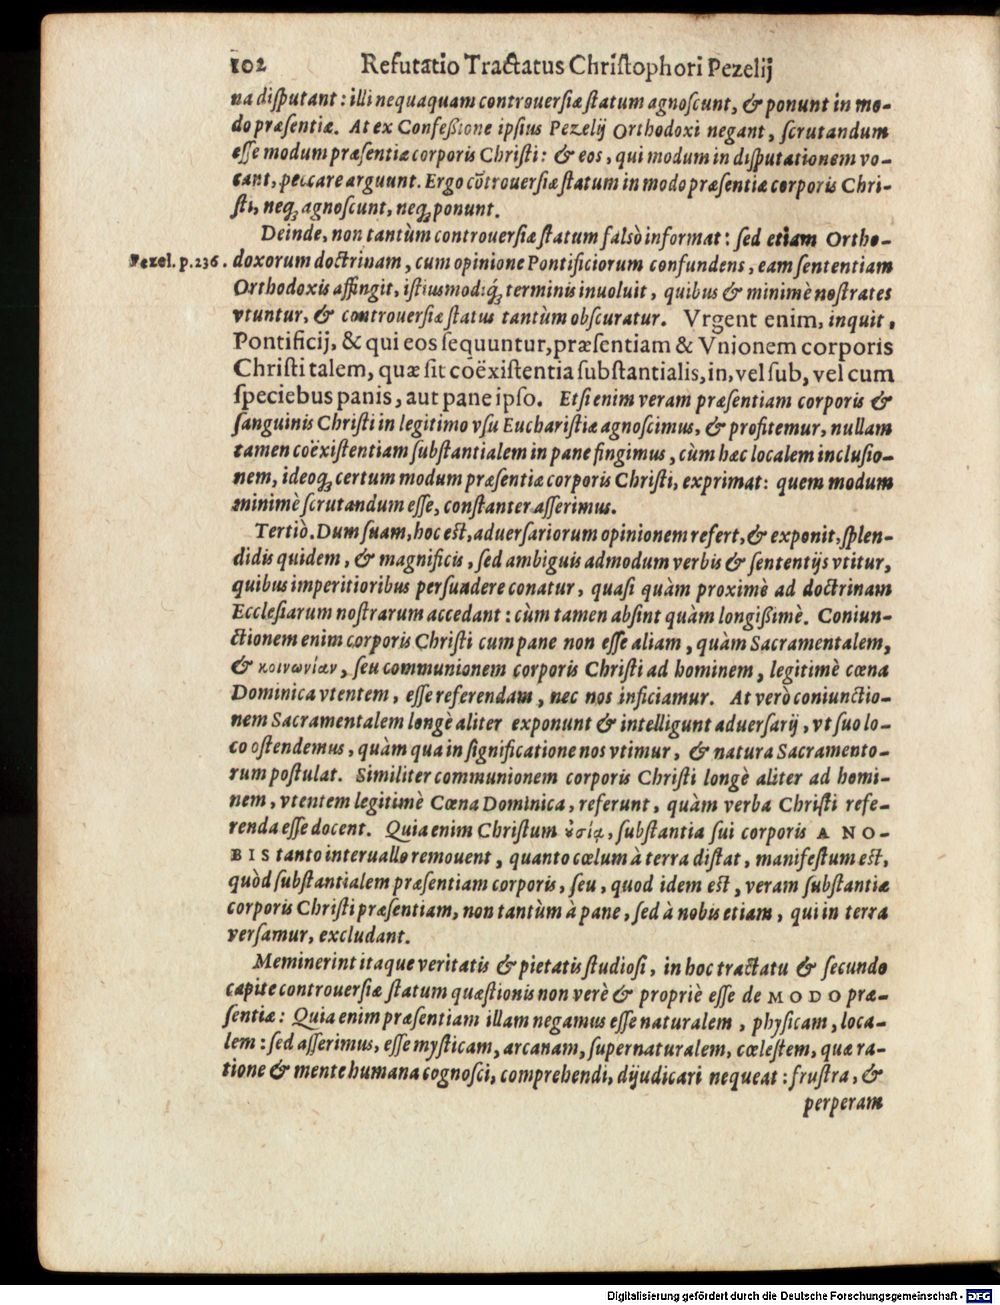 102 Refutatio Tractatus Chriſtophori Pezelij
na diſputant: illi nequaquam controuerſiæ ſtatum agnoſcunt, & ponunt in mo-
do præſentiæ. At ex Confeßione ipſius Pezelij Orthodoxi negant, ſcrutandum
eſſe modum præſentiæ corporis Chriſti: & eos, qui modum in diſputationem vo-
cant, peccare arguunt. Ergo cōtrouerſiæ ſtatum in modo præſentiæ corporis Chri-
ſti, neq; agnoſcunt, neq; ponunt.
Deinde, non tantùm controuerſiæ ſtatum falsò informat: ſed etiam Ortho-
Pezel. p. 236. doxorum doctrinam, cum opinione Pontificiorum confundens, eam ſententiam
Orthodoxis affingit, iſtiusmodiq́; terminis inuoluit, quibus & minimè noſtrates
vtuntur, & controuerſiæ ſtatus tantùm obſcuratur. Vrgent enim, inquit,
Pontificij, & qui eos ſequuntur, præſentiam & Vnionem corporis
Chriſti talem, quæ ſit coëxiſtentia ſubſtantialis, in, vel ſub, vel cum
ſpeciebus panis, aut pane ipſo. Etſi enim veram præſentiam corporis &
ſanguinis Chriſti in legitimo vſu Euchariſtiæ agnoſcimus, & profitemur, nullam
tamen coëxiſtentiam ſubſtantialem in pane fingimus, cùm hæc localem incluſio-
nem, ideoq; certum modum præſentiæ corporis Chriſti, exprimat: quem modum
minimè ſcrutandum eſſe, conſtanter aſſerimus.
Tertiò. Dum ſuam, hoc eſt, aduerſariorum opinionem refert, & exponit, ſplen-
didis quidem, & magnificis, ſed ambiguis admodum verbis & ſententijs vtitur,
quibus imperitioribus perſuadere conatur, quaſi quàm proximè ad doctrinam
Eccleſiarum noſtrarum accedant: cùm tamen abſint quàm longißimè. Coniun-
ctionem enim corporis Chriſti cum pane non eſſe aliam, quàm Sacramentalem,
& κοινωνίαν, ſeu communionem corporis Chriſti ad hominem, legitimè cœna
Dominica vtentem, eſſe referendam, nec nos inficiamur. At verò coniunctio-
nem Sacramentalem longè aliter exponunt & intelligunt aduerſarij, vt ſuo lo-
co oſtendemus, quàm qua in ſignificatione nos vtimur, & natura Sacramento-
rum poſtulat. Similiter communionem corporis Chriſti longè aliter ad homi-
nem, vtentem legitimè Cœna Dominica, referunt, quàm verba Chriſti refe-
renda eſſe docent. Quia enim Chriſtum ȣ̓σίᾳ, ſubſtantia ſui corporis A NO-
BIS tanto interuallo remouent, quanto cœlum à terra diſtat, manifeſtum eſt,
quòd ſubſtantialem præſentiam corporis, ſeu, quod idem eſt, veram ſubſtantiæ
corporis Chriſti præſentiam, non tantùm à pane, ſed à nobis etiam, qui in terra
verſamur, excludant.
Meminerint itaque veritatis & pietatis ſtudioſi, in hoc tractatu & ſecundo
capite controuerſiæ ſtatum quæſtionis non verè & propriè eſſe de MODO præ-
ſentiæ: Quia enim præſentiam illam negamus eſſe naturalem, phyſicam, loca-
lem: ſed aſſerimus, eſſe myſticam, arcanam, ſupernaturalem, cœleſtem, quæ ra-
tione & mente humana cognoſci, comprehendi, dijudicari nequeat: fruſtra, &
perperam
Digitalisierung gefördert durch die Deutsche Forschungsgemeinschaft - DFG